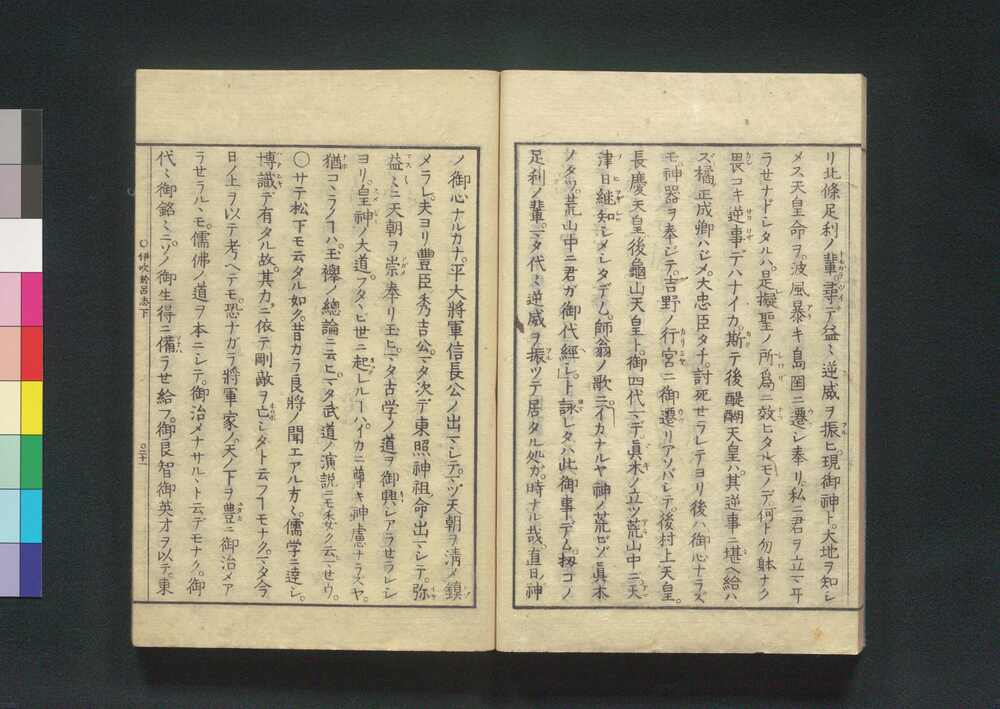 リ北條足利ノ輩マデ益〻逆威ヲ振ヒ。現御神ト。大地ヲ知シ
メス天皇命ヲ。波風暴キ島國ニ遷シ奉リ。私ニ君ヲ立マヰ
ラセナドシタルハ。是擬聖ノ所為ニ效ヒタルモノデ何ト勿躰ナク
畏コキ逆事デハナイカ。斯テ後醍醐天皇ハ。其逆事ニ堪ヘ給ハ
ズ橘正成卿ハジメ。大忠臣タチ。討死セラレテヨリ後ハ御心ナラズ
モ。神器ヲ奉ジテ。吉野ノ行宮ニ御遷リアソバシテ。後村上天皇。
長慶天皇。後龜山天皇ト。御四代マデ眞木ノ立ツ荒山中ニ天
津日継知シメシタデム。師翁ノ歌ニ。イカナルヤ神ノ荒ビゾ眞木
ノタツ。荒山中ニ君ガ御代經シ。ト詠レタハ此御事デム。扨コノ
足利ノ輩。マタ代〻逆威ヲ振ツテ居タル処ガ。時ナル哉直日ノ神
ノ御心ナルカナ。平大將軍信長公ノ出マシテ。マヅ天朝ヲ清メ鎮
メラレ。夫ヨリ豊臣秀吉公。マタ次デ東照神祖命出マシテ。弥
益〻ニ天朝ヲ崇奉リ玉ヒ。マタ古学ノ道ヲ御興シアラセラレシ
ヨリ。皇神ノ大道。フタヽビ世ニ起レルヿハ。イカニ尊キ神慮ナラズヤ。
猶コヽラノヿハ。玉襷ノ總論ニ云ヒ。マタ武道ノ演説ニモ委ク云マセウ。
○サテ松下モ云タル如ク。昔カラ良將ノ聞エアル方〻。儒学ニ達シ。
博識デ有タル故。其力ニ依テ剛敵ヲ亡シタト云フヿモナク。マタ今
日ノ上ヲ以テ考ヘテモ。恐ナガラ將軍家ノ。天ノ下ヲ豊ニ御治メア
ラセラルヽモ。儒佛ノ道ヲ本ニシテ。御治メナサルヽト云デモナク。御
代〻御銘〻ニ。ソノ御生得ニ備ラセ給フ。御良智御英才ヲ以テ。東
○伊吹於呂志下